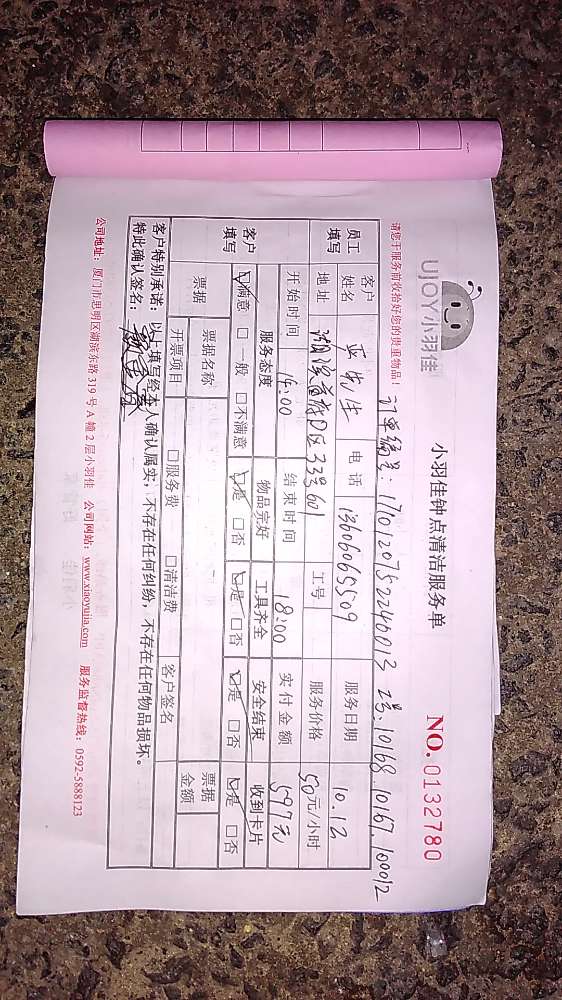 UJOY小羽佳
小羽佳钟点清洁服务单
NO. 0132780
请您于服务前收拾好您的贵重物品！
订单编号：17101207522460013 工号：10168.10167.10012
员工填写 客户姓名 先生 电话 13606065509 服务日期 10.12
地址 D区33#601 工号 服务价格 50元/小时
开始时间 14:00 结束时间 18:00 实付金额 597元
客户填写 服务态度 物品完好 工具齐全 安全结束 收到卡片
☑满意 □一般 □不满意 ☑是 □否 ☑是 □否 ☑是 □否 ☑是 □否
票据 票据名称 票据金额
开票项目 □服务费 □清洁费 客户签名
客户特别承诺：以上填写经本人确认属实；不存在任何纠纷，不存在任何物品损坏。
特此确认签名：
公司地址：厦门市思明区湖滨东路 319 号 A 幢 2 层小羽佳 公司网站：www.xiaoyujia.com 服务监督热线：0592-5888123